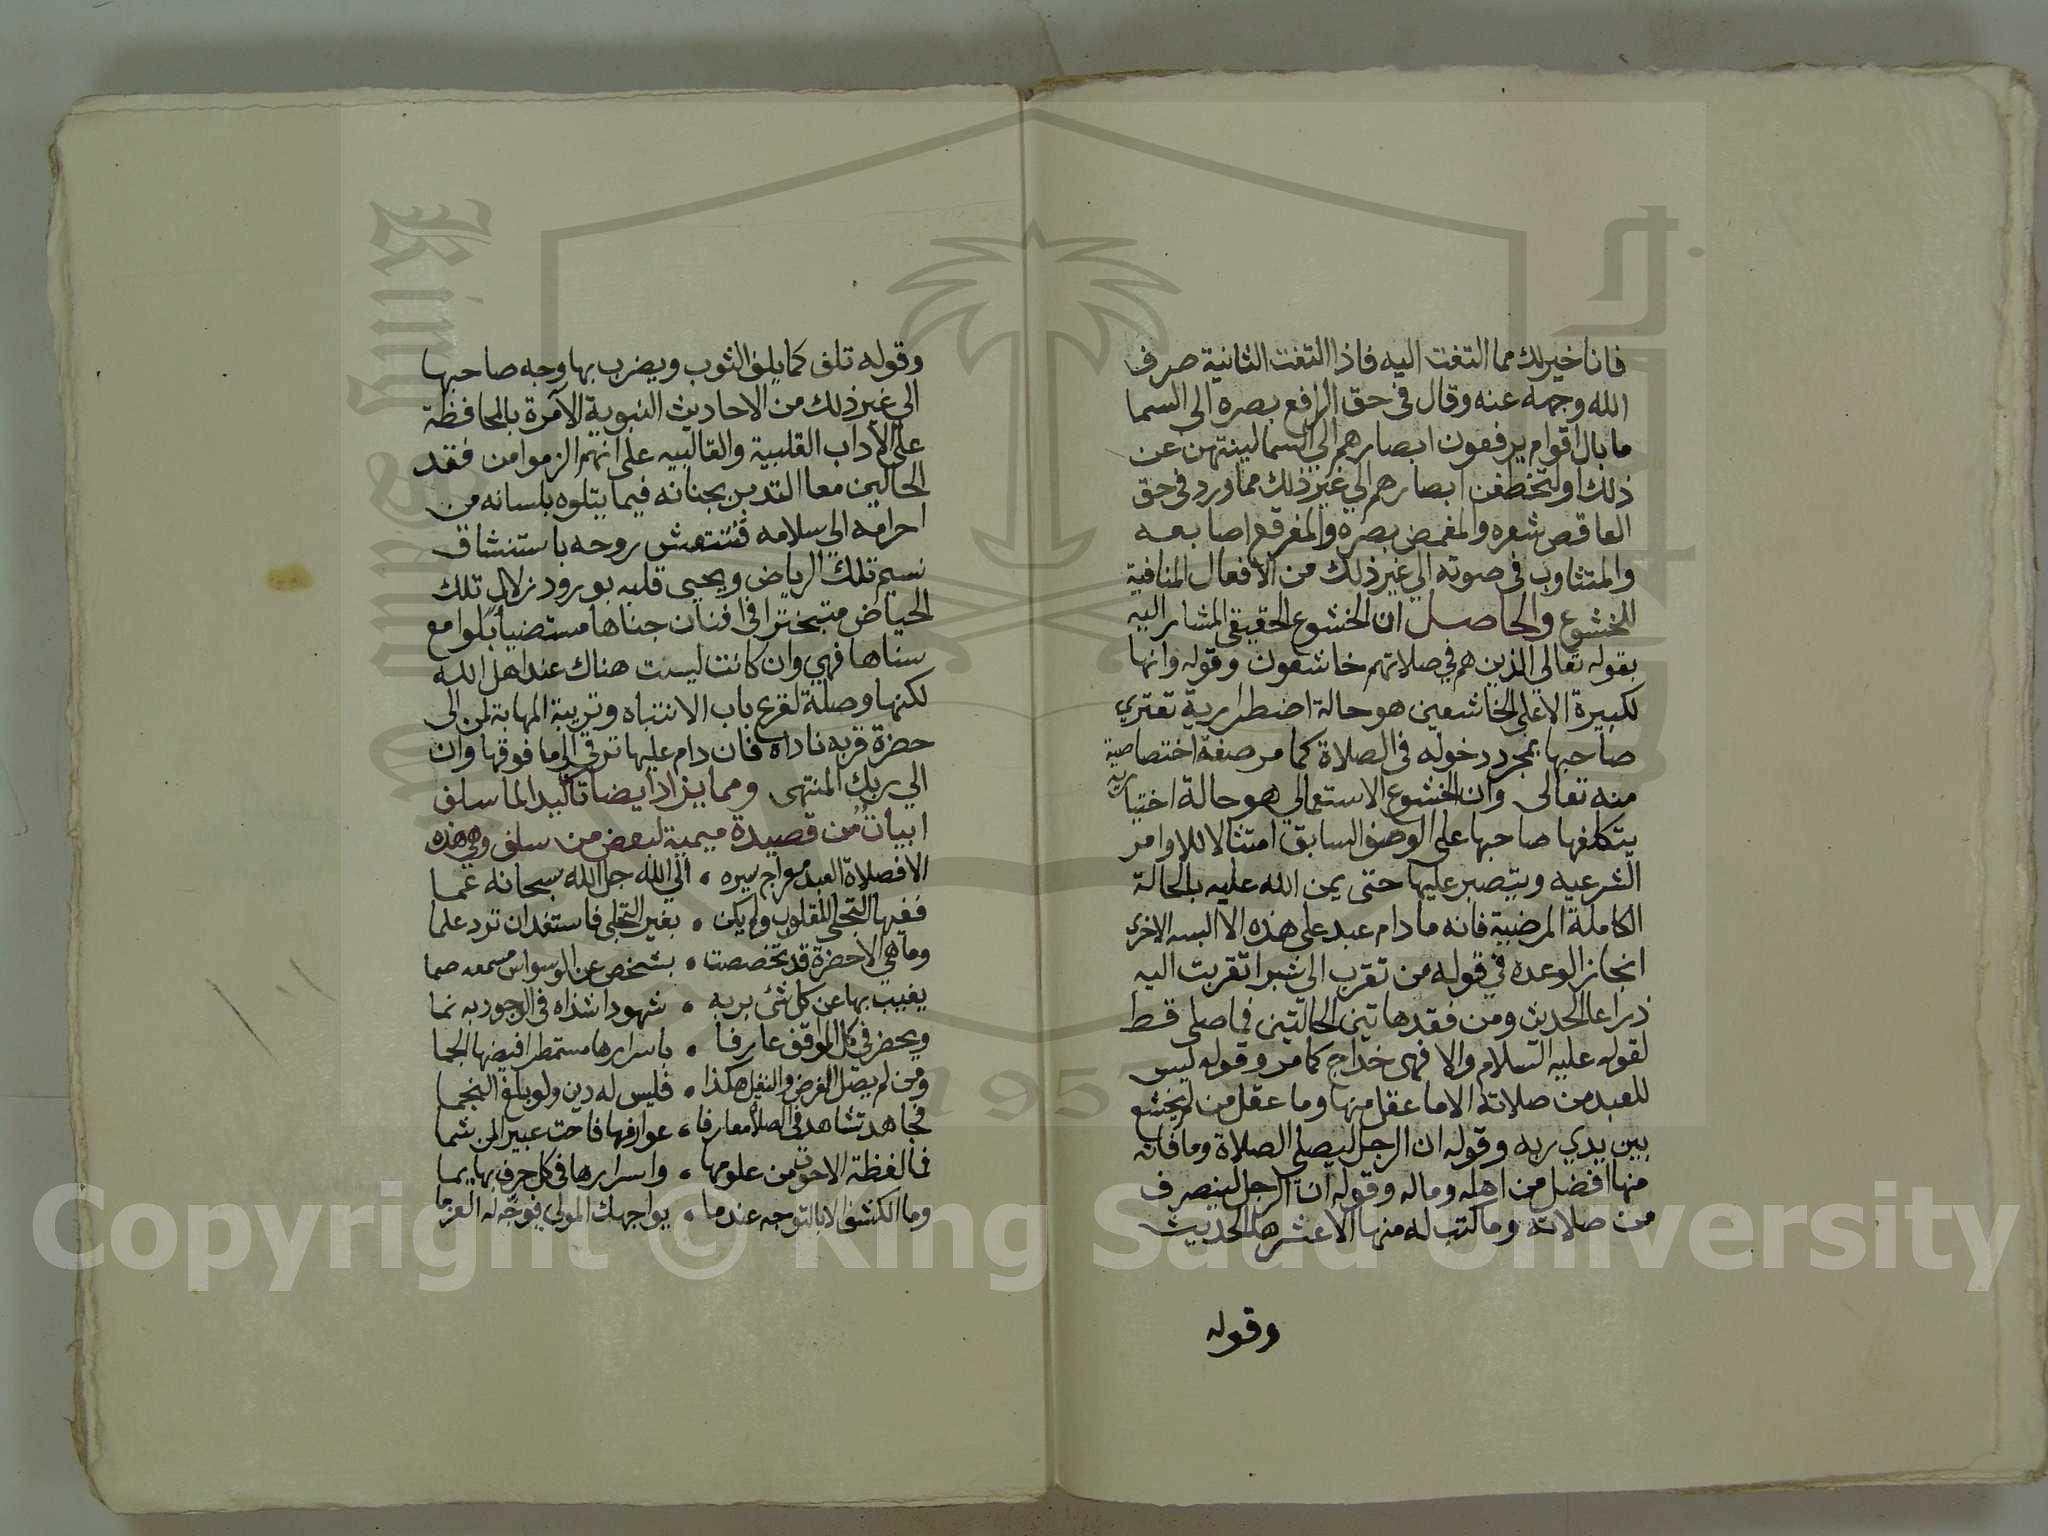 فانا خير لك مما التفت اليه فاذا التفت الثانية صرف
الله وجهه عنه وقال في حق الرافع بصره الى السما
ما بال اقوام يرفعون ابصارهم الى السما لينتهن عن
ذلك او لتخطفن ابصارهم الي غير ذلك مما ورد في حق
العاقص شعره والمغمض بصره والمفرقع اصابعه
والمتثاوب في صوته الي غير ذلك من الافعال المنافية
للخشوع والحاصل ان الخشوع الحقيقي المشار اليه
بقوله تعالي الذين هم في صلاتهم خاشعون وقوله وانها
لكبيرة الا على الخاشعين هو حالة اضطرارية تعتري
صاحبها بمجرد دخوله في الصلاة كما مر صفة اختصاصية
منه تعالى وان الخشوع الاستعمالي هو حالة اختيارية
يتكلفها صاحبها على الوصف السابق امتثالا للاوامر
الشرعيه ويتصبر عليها حتى يمن الله عليه بالحالة
الكاملة المرضية فانه ما دام عبد على هذه الا البسه الاخرى
انجاز الوعده في قوله من تقرب الى شبرا تقربت اليه
ذراعا الحديث ومن فقد هاتين الحالتين فما صلى قط
لقوله عليه السلام والا فهى خداج كما مر وقوله ليس
للعبد من صلاته الا ما عقل منها وما عقل من لم يخشع
بين يدي ربه وقوله ان الرجل ليصلي الصلاة وما فاته
منها افضل من اهله وماله وقوله ان الرجل لينصرف
من صلاته وما كتب له منها الا عشرها الحديث
وقوله
وقوله تلف كما يلف الثوب ويضرب بها وجه صاحبها
الي غير ذلك من الاحاديث النبوية الآمرة بالمحافظة
على الآداب القلبية والقالبيه على انهم الزموا من فقد
الحالين معا التدبر بجنانه فيما يتلوه بلسانه من
احرامه الى سلامه فتنتعش روحه باستنشاق
نسيم تلك الرياض ويحيى قلبه بورود زلال تلك
الحياض متبخترا في افنان جناها مستضيأ بلوامع
سناها فهي وان كانت ليست هناك عند اهل الله
لكنها وصلة لقرع باب الانتباه وتربية المهابة لمن الى
حضرة قربه ناداه فان دام عليها ترقي الي ما فوقها وان
الي ربك المنتهى ومما يزاد ايضا تاكيدا لما سلف
ابيات من قصيدة ميمية لبعض من سلف وهي هذه
الا فصلاة العبد معراج سيره ، الي الله جل الله سبحانه عما
ففيها التجلي للقلوب ولم يكن ، بغير التجلي فاستفد ان ترد علما
وما هي الا حضرة قد تخصصت ، بشخص عن الوسواس مسمعه صما
يغيب بها عن كل شئ بربه ، شهودا شذاه في الوجود به نما
ويحضر في كل المواقف عارفا ، باسرارها مستمطرا فيضها الجما
ومن لم يصل الفرض والنفل هكذا ، فليس له دين ولو بلغ النجما
فجاهد تشاهد في الصلاة معارفا ، عوارفها فاحت عبير المن شما
فما لفظة الا حوت من علومها ، واسرارها في كل حرف بها يما
وما الكشف الا بالتوجه عندما ، يواجهك المولي فوجه له العزما